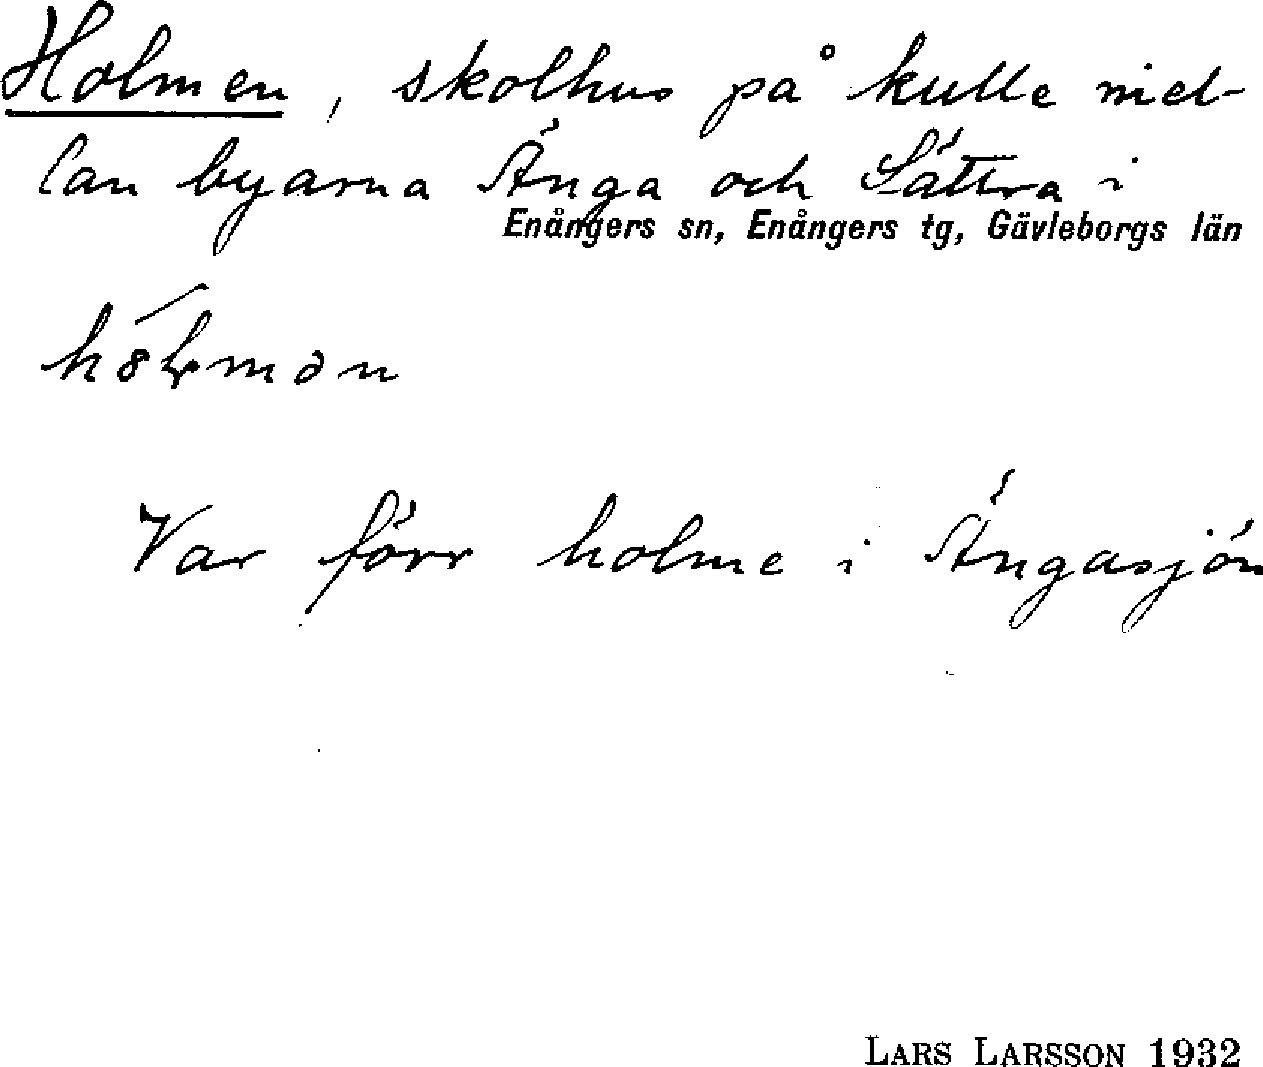 Holmen, skolhus på kulle mel-
lan byarna Änga och Sättra i
Enångers sn, Enångers tg, Gävleborgs län
Var förr holme i Ängasjön
LARS LARSSON 1932